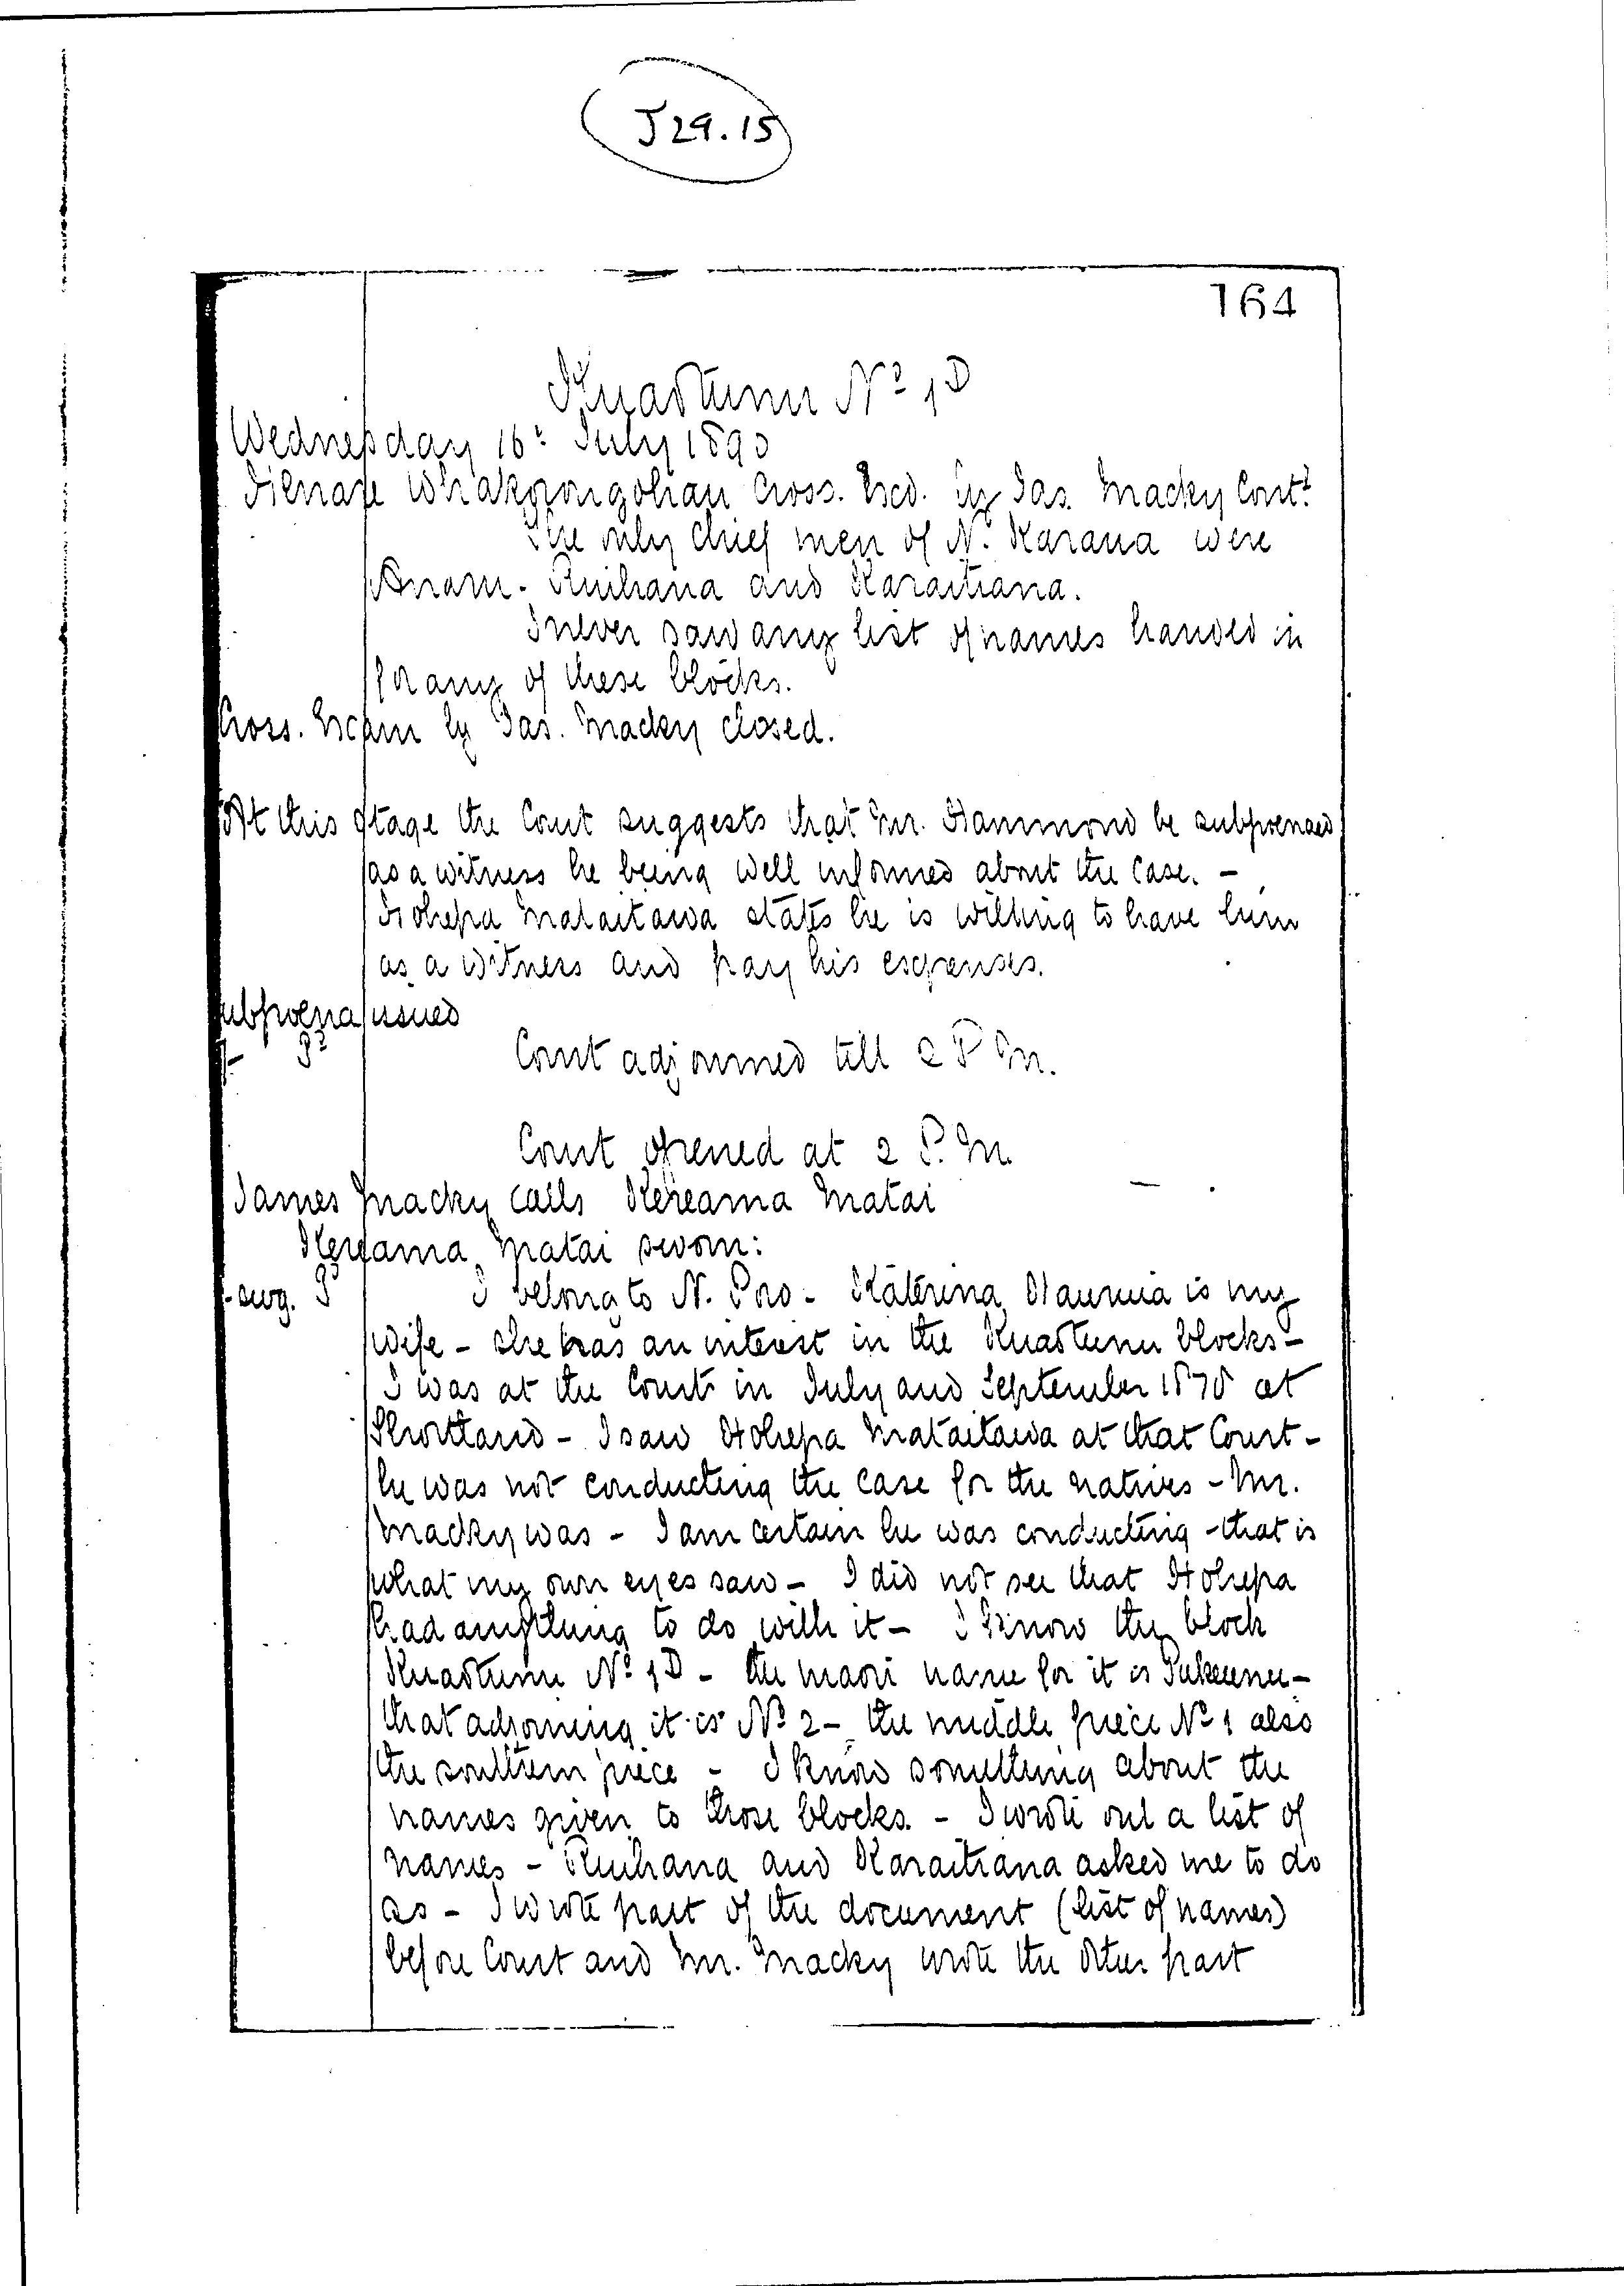 J29.15
164
Kuaotunu No 1D
Wednesday 16: July 1890
Cross. Exd. by Jas. Macky Contd
The only chief men of N. Karaua were
Anaru. Ruihana and Karaitiana.
I never saw any list of names handed in
for any of these blocks.
Cross. Exam by Jas. Macky closed.
At this stage the Court suggests that Mr. Hammond be subpoenaed
as a witness he being well informed about the case. -
Hohepa Mataitawa states he is willing to have him
as a witness and pay his expenses.
ubpoena issued
Court adjourned till 2 P M.
Court opened at 2 P. M.
James Macky calls Kereama Matai
Kereama Matai sworn:
I belong to N. Poro - Katerina Hauruia is my
wife - she has an interest in the Kuaotunu blocks -
I was at the Court in July and September 1878 at
Shortland - I saw Hohepa Mataitawa at that Court -
he was not conducting the case for the natives - Mr.
Macky was - I am certain he was conducting - that is
what my own eyes saw - I did not see that Hohepa
had anything to do with it - I know the block
Kuaotunu No 1D - the maori name for it is
that adjoining it is No 2 - the middle piece No 1 also
the southern piece - I know something about the
names given to those blocks. - I wrote out a list of
names - Ruihana and Karaitiana asked me to do
so - I wrote part of the document (list of names)
before Court and Mr. Macky wrote the other part